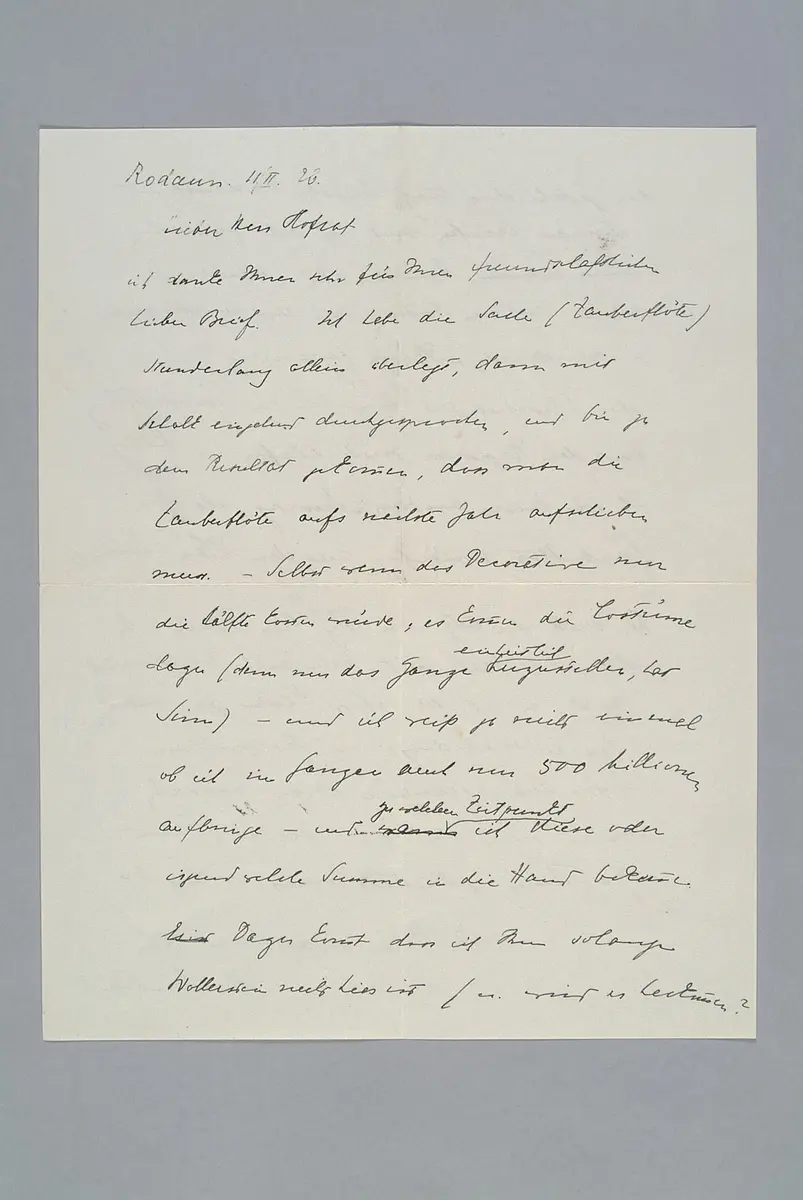 Rodaun. 11/II. 26.
lieber Herr Hofrat
ich danke Ihnen sehr für Ihren freundschaftlichen
lieben Brief. Ich habe die Sache (Zauberflöte)
stundenlang allein überlegt, dann mit
eingehend durchgesprochen, und bin zu
dem Resultat gekommen, dass man die
Zauberflöte aufs nächste Jahr aufschieben
muss. – Selbst wenn das Decorative nur
die Hälfte kosten würde, es kämen die Costüme
dazu (denn nur das Ganze einheitlich herzustellen, hat
Sinn) – und ich weiß ja nicht einmal
ob ich im Ganzen auch nur 500 Millionen
aufbringe – und zu welchem Zeitpunkt ich diese oder
irgend welche Summe in die Hand bekäme.
Dazu kommt dass ich Ihnen solange
Wollerstein nicht hier ist (u. wird er herkommen?